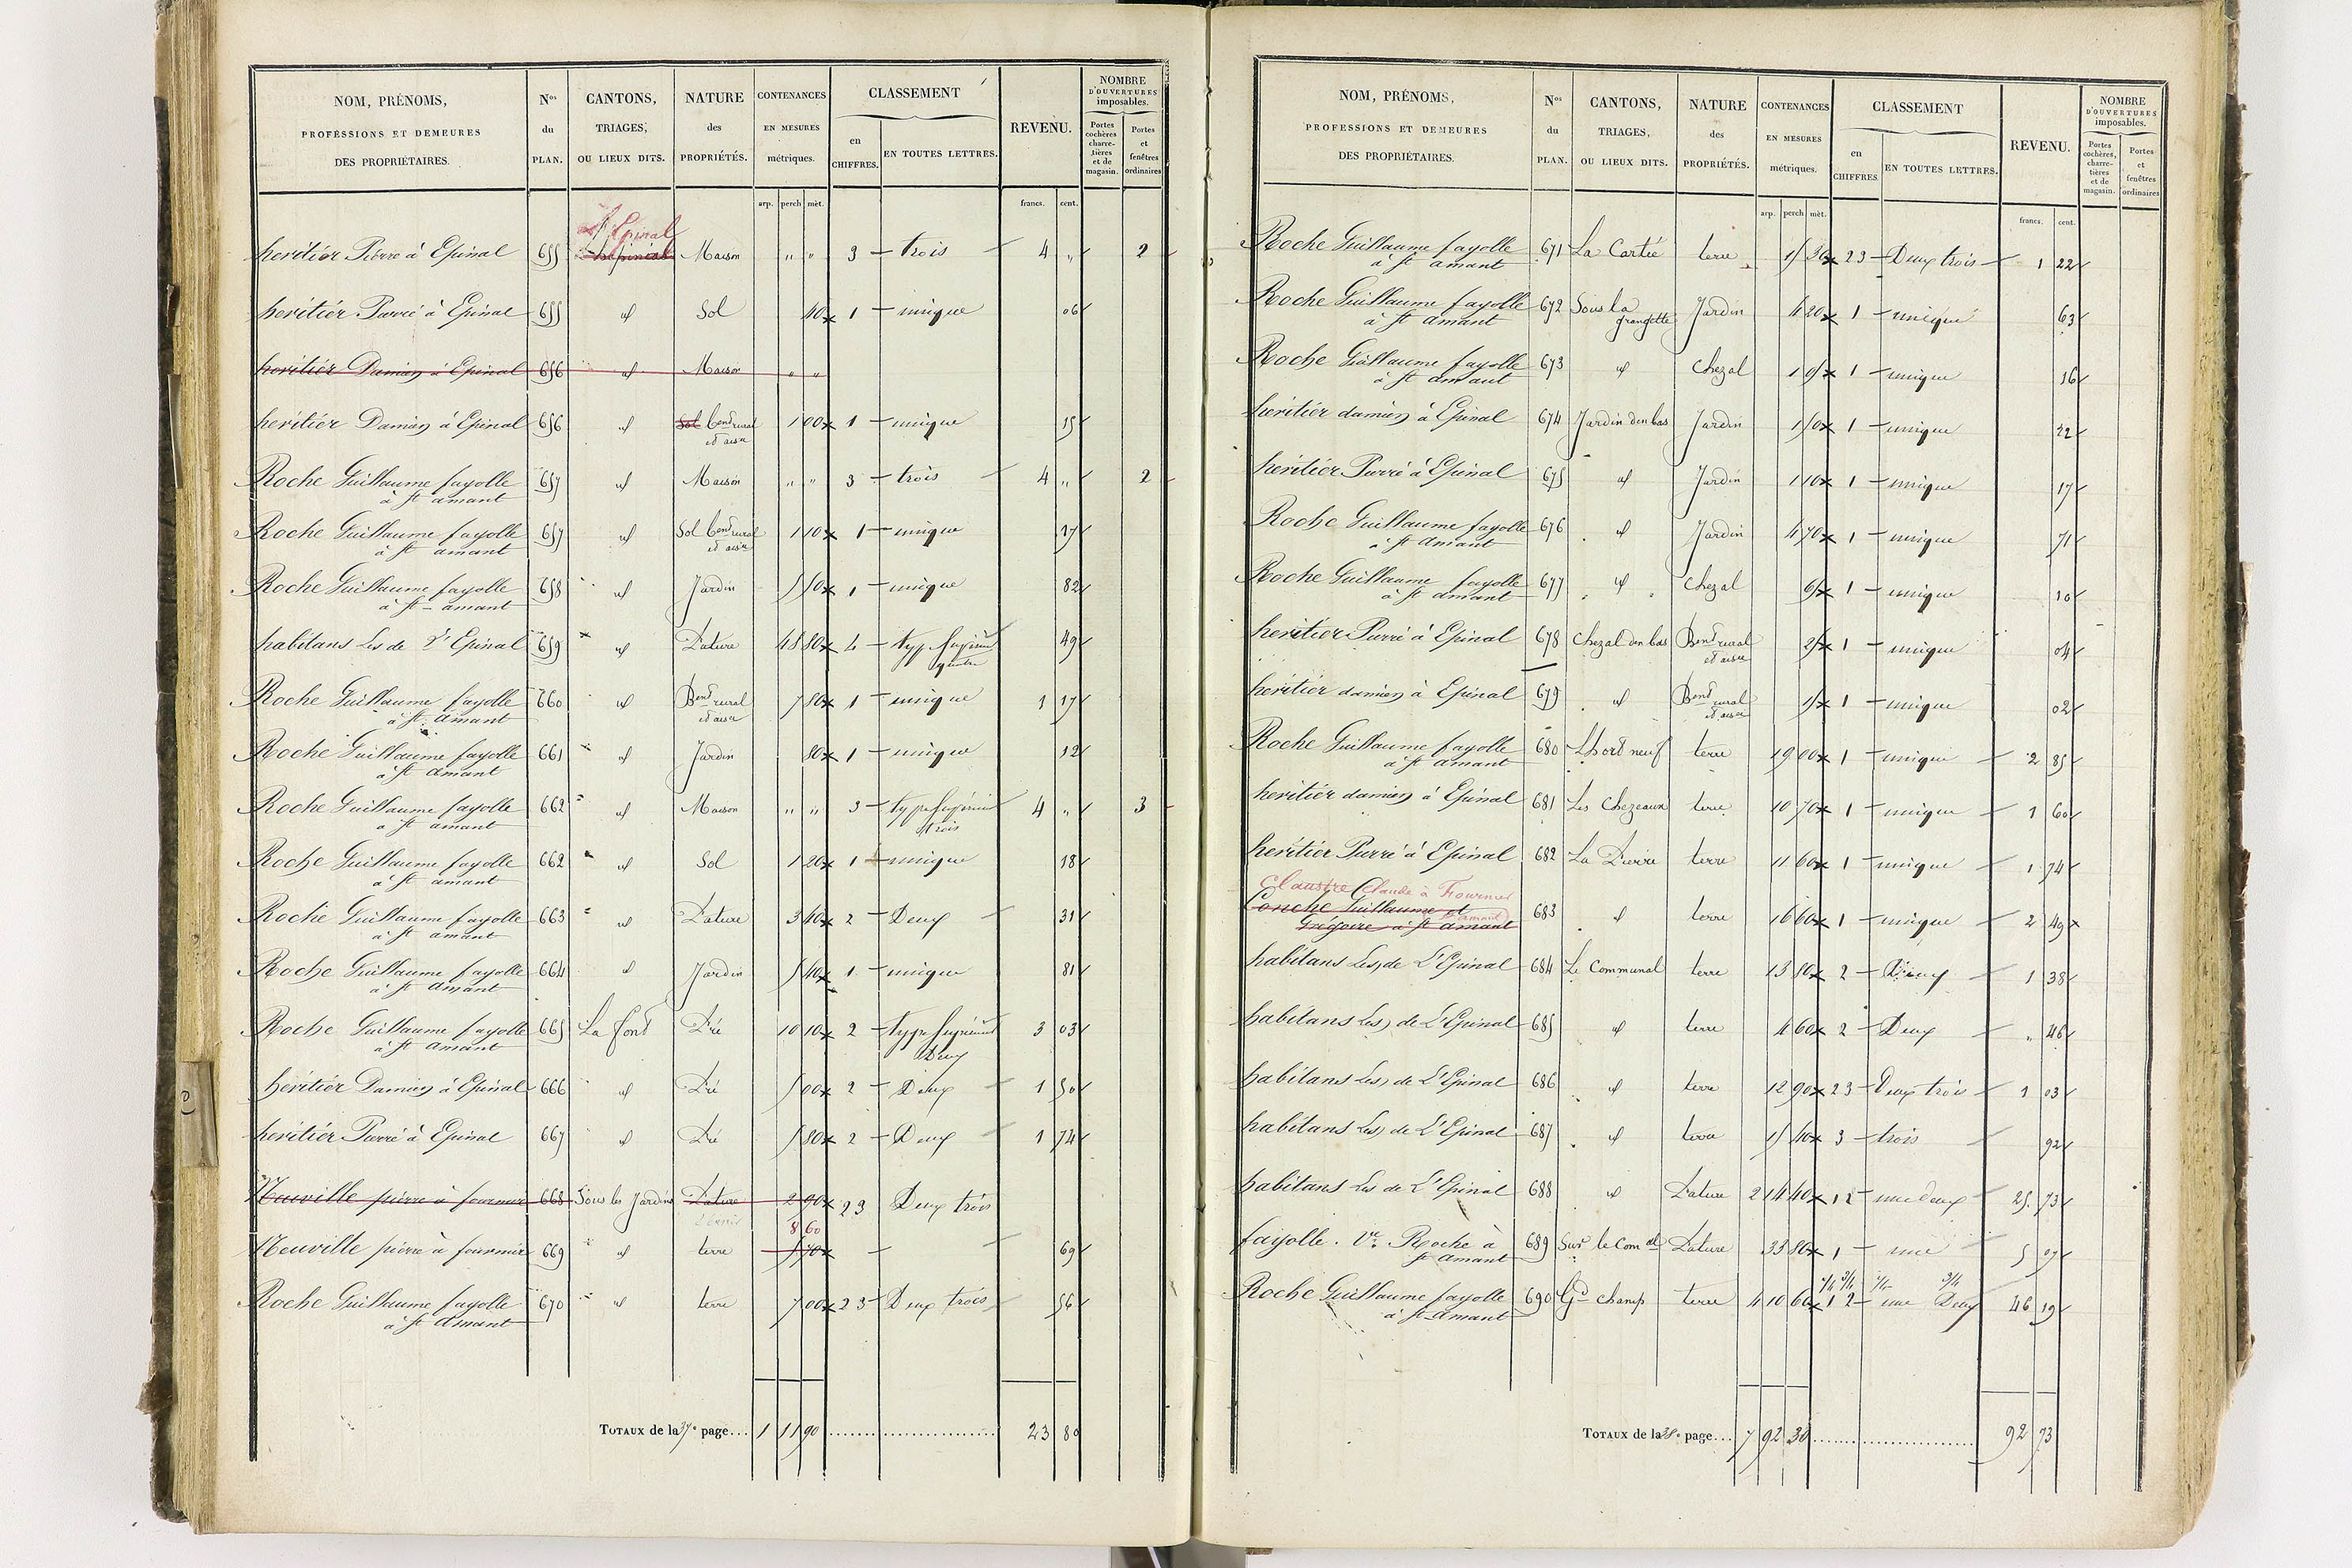 NOM, PRÉNOMS,
PROFESSIONS ET DEMEURES
DES PROPRIÉTAIRES.
Nos du PLAN.
CANTONS, TRIAGES, OU LIEUX DITS.
NATURE des PROPRIÉTÉS.
CONTENANCES EN MESURES métriques.
CLASSEMENT
en CHIFFRES.
EN TOUTES LETTRES.
REVENU.
NOMBRE D'OUVERTURES imposables.
Portes cochères, charretières et de magasin.
Portes et fenêtres ordinaires
arp. perch. mèt. francs. cent.
L'Epinal
heritiér Pierre à Epinal 655 Maison " " 3 trois 4 " 2
heritiér Pierre à Epinal 655 id Sol 40 1 unique 06
heritiér Damien à Epinal 656 id Maison " "
heritiér Damien à Epinal 656 id Sol Bend rural et aisce 1 00 1 unique 15
Roche Guillaume fayolle à st amant 657 id Maison " " 3 trois 4 " 2
Roche Guillaume fayolle à st amant 657 id Sol bend rural et aisce 1 10 1 unique 17
Roche Guillaume fayolle à st amant 658 id Jardin 5 50 1 unique 82
habitans Les de L'Epinal 659 id Pature 48 80 4 49
Roche Guillaume fayolle à st amant 660 id Bend rural et aisce 7 80 1 unique 1 17
Roche Guillaume fayolle à st amant 661 id Jardin 80 1 unique 12
Roche Guillaume fayolle à st amant 662 id Maison " " 3 trois 4 " 3
Roche Guillaume fayolle à st amant 662 id Sol 1 20 1 unique 18
Roche Guillaume fayolle à st amant 663 id Pature 3 40 2 Deux 31
Roche Guillaume fayolle à st amant 664 id Jardin 5 40 1 unique 81
Roche Guillaume fayolle à st amant 665 La font Pré 10 10 2 Deux 3 03
heritiér Damien à Epinal 666 id Pré 5 00 2 Deux 1 50
heritiér Pierre à Epinal 667 id Pré 5 80 2 Deux 1 74
Neuville pierre à fournier 668 Sous les Jardins Pature 2 90 23 Deux trois
8 60
Neuville pierre à fournier 669 id terre 69
Roche Guillaume fayolle à st amant 670 id terre 7 00 23 Deux trois 56
TOTAUX de la 37e page... 1 11 90 23 80
NOM, PRÉNOMS,
PROFESSIONS ET DEMEURES
DES PROPRIÉTAIRES.
Nos du PLAN.
CANTONS, TRIAGES, OU LIEUX DITS.
NATURE des PROPRIÉTÉS.
CONTENANCES EN MESURES métriques.
CLASSEMENT
en CHIFFRES.
EN TOUTES LETTRES.
REVENU.
NOMBRE D'OUVERTURES imposables.
Portes cochères, charretières et de magasin.
Portes et fenêtres ordinaires
arp. perch. mèt. francs. cent.
Roche Guillaume fayolle à st amant 671 La Cartée terre 15 30 23 Deux trois 1 22
Roche Guillaume fayolle à st amant 672 Sous la grangette Jardin 4 20 1 unique 63
Roche Guillaume fayolle à st amant 673 id chezal 1 05 1 unique 16
heritiér damien à Epinal 674 Jardin den bas Jardin 1 50 1 unique 22
heritiér Pierre à Epinal 675 id Jardin 1 10 1 unique 17
Roche Guillaume fayolle à st amant 676 id Jardin 4 70 1 unique 71
Roche Guillaume fayolle à st amant 677 id chezal 65 1 unique 10
heritiér Pierre à Epinal 678 chezal den bas Bend rural et aisce 25 1 unique 04
heritiér damien à Epinal 679 id Bend rural et aisce 15 1 unique 02
Roche Guillaume fayolle à st amant 680 Lhort neuf terre 19 00 1 unique 2 85
heritiér damien à Epinal 681 Les Chezeaux terre 10 70 1 unique 1 60
heritiér Pierre à Epinal 682 La Pierre terre 11 60 1 unique 1 74
Claustre Claude à Fournier
Conche Guillaume et Grégoire à st amant 683 id terre 16 60 1 unique 2 49
habitans Les de L'Epinal 684 Le Communal terre 13 80 2 Deux 1 38
habitans Les de L'Epinal 685 id terre 4 60 2 Deux " 46
habitans Les de L'Epinal 686 id terre 12 90 23 Deux trois 1 03
habitans Les de L'Epinal 687 id terre 15 40 3 trois 92
habitans Les de L'Epinal 688 id Pature 2 14 40 12 une deux 25 73
fayolle. Ve. Roche à st amant 689 Sur le Comal Pature 33 80 1 une 5 07
1/4 3/4 1/4 3/4
Roche Guillaume fayolle à st amant 690 Gd champ terre 4 10 60 1 2 une Deux 46 19
TOTAUX de la 38e page... 7 92 30 92 73